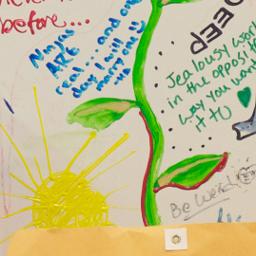 before...
Ninjas
ARE
real...and one
day I will
marry one!!
DEEP
Jealousy works
in the opposite
way you want
it to
Be Weird